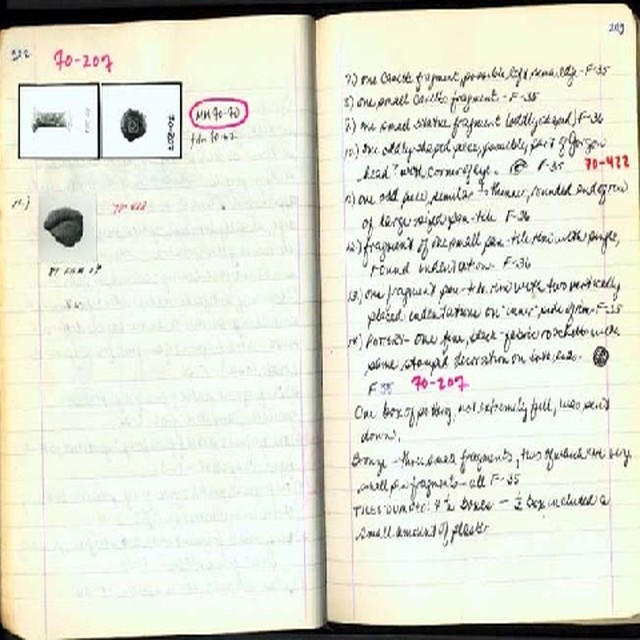 222
70-207
MN 70-70
14.)
70-422
209
7.) one Coarse fragment, possible left - F-35
8.) one small Coarse fragment. - F-35
9.) one small statue fragment (oddly shaped) F-36
10.) one oddly shaped piece, possibly part of Gorgon
head? with corner of eye. F-35 70-422
11.) one odd piece, similar rounded end of rim
of large sized pan-tile F-36
12.) fragment of one small pan-tile rim with single,
round indentation F-36
13.) one fragment pan-tile rim with two vertically
placed indentations on inner side of rim - F-35
14.) POTTERY - One fine, black-fabric rocchetto with
some stamped decoration on both ends.
F 35 70-207
One box of pottery, not extremely full, was sent
down.
Bronze - three small fragments, two of which are very
small pin fragments - all F-35
4 ½ boxes - ½ box included a
small amount of plaster